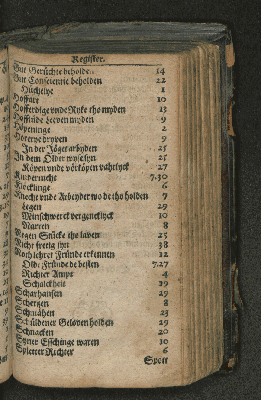 Register.
Gut Gerüchte beholden 14
Gut Conscientie beholden 22
Hüchelye 1
Hoffart 10
Hofferdige vnde Ryke tho myden 13
Hoffnüde Leeven myden 9
Höpeninge 2
Horerye dryven 9
In der Jöget arbyden 25
In dem Older wyselyn 25
Köpen vnde vörköpen vahrlyck 27
Kinderzucht 7.30
Klecklinge 6
Knecht vnde Arbeyder wo de tho holden 7
Legen 29
Minschwerck vergencklyck 10
Narren 8
Negen Stücke tho laven 25
Nicht fretig syn 38
Nothlydet Fründe erkennen 12
Olde Fründe de besten 7.27
Richter Ampt 4
Schalckheit 19
Scharhansen 29
Schertzen 8
Schmähen 23
Schüldener Geloven holden 29
Schnacken 20
Syner Esschinge waren 10
Spletter Richter 6
Speer